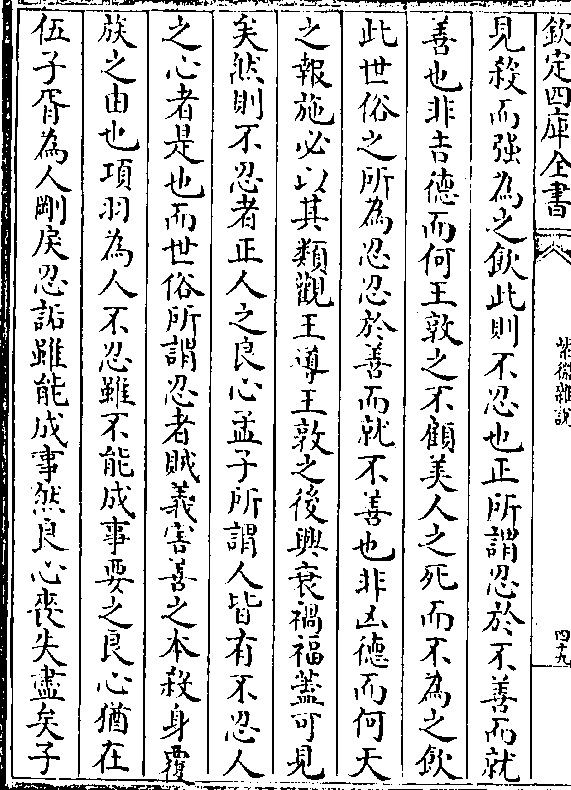 欽定四庫全書
紫微雜說
四十九
見殺而強為之飲此則不忍也正所謂忍於不善而就
善也非吉德而何王敦之不顧美人之死而不為之飲
此世俗之所為忍忍於善而就不善也非凶德而何天
之報施必以其類觀王導王敦之後興衰禍福蓋可見
矣然則不忍者正人之良心孟子所謂人皆有不忍人
之心者是也而世俗所謂忍者賊義害善之本殺身覆
族之由也項羽為人不忍雖不能成事要之良心猶在
伍子胥為人剛戾忍詬雖能成事然良心喪失盡矣子